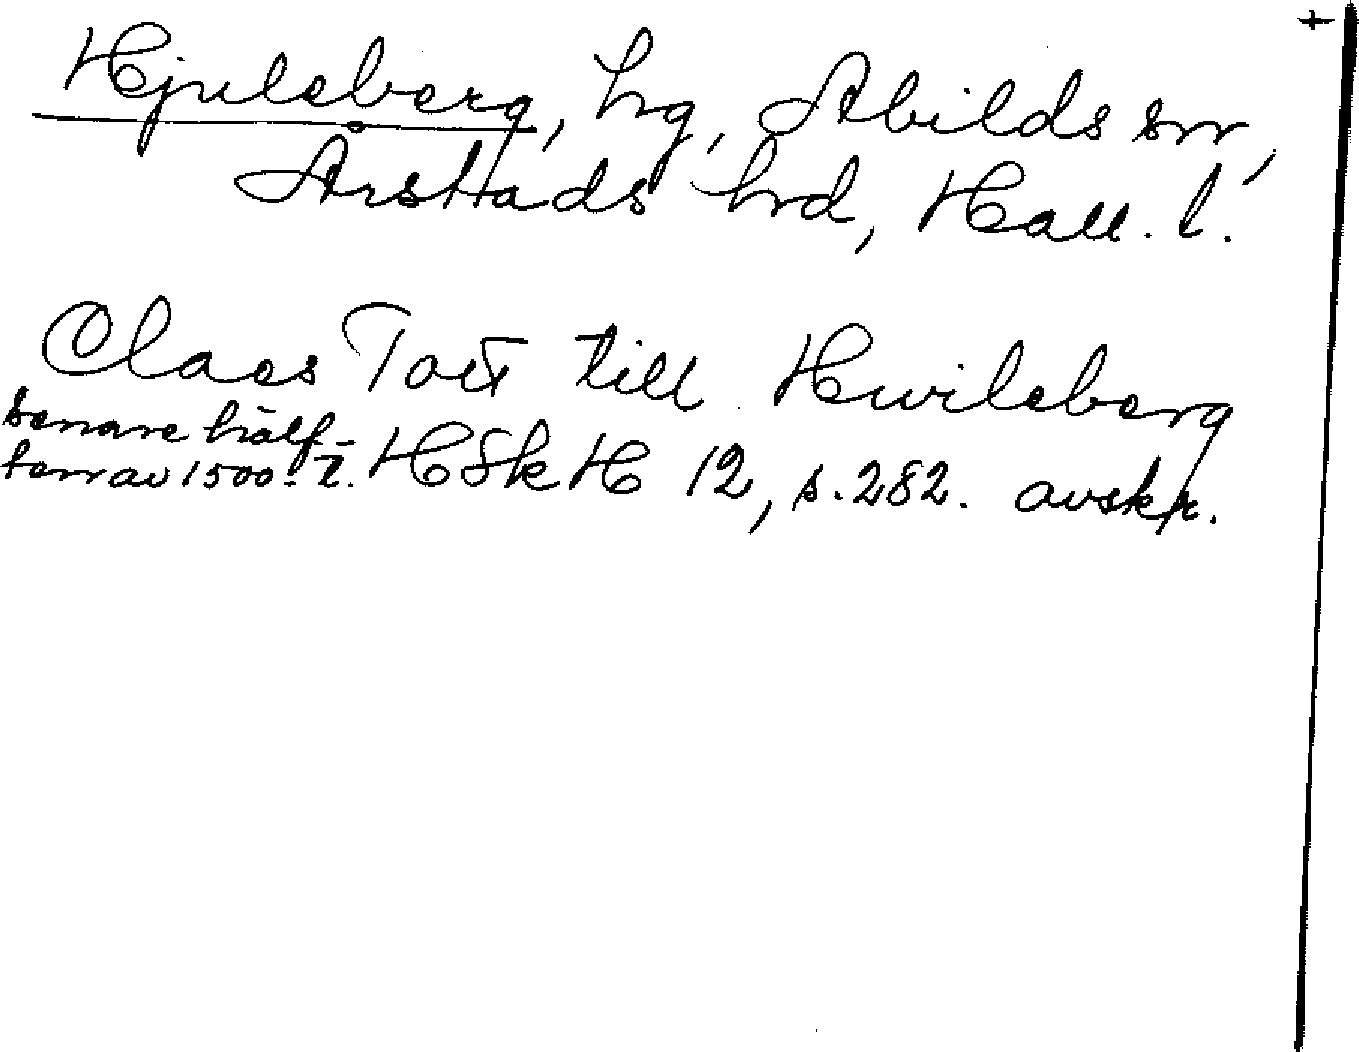 +
Hjuleberg, hg, Abilds sn,
Årstads hrd, Hall. l.
Claes Tott till Hwileberg
senare hälf-
ten av 1500-t. HSkH 12, s. 282. avskr.